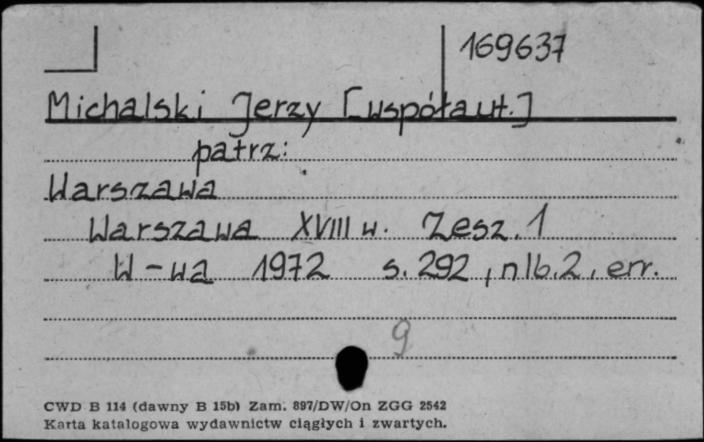 169637
Michalski Jerzy [współaut.]
patrz:
Warszawa
Warszawa XVIII w. Zesz. 1
W-wa 1972 s. 292, nlb. 2, err.
9
CWD B 114 (dawny B 15b) Zam. 897/DW/On ZGG 2542
Karta katalogowa wydawnictw ciągłych i zwartych.